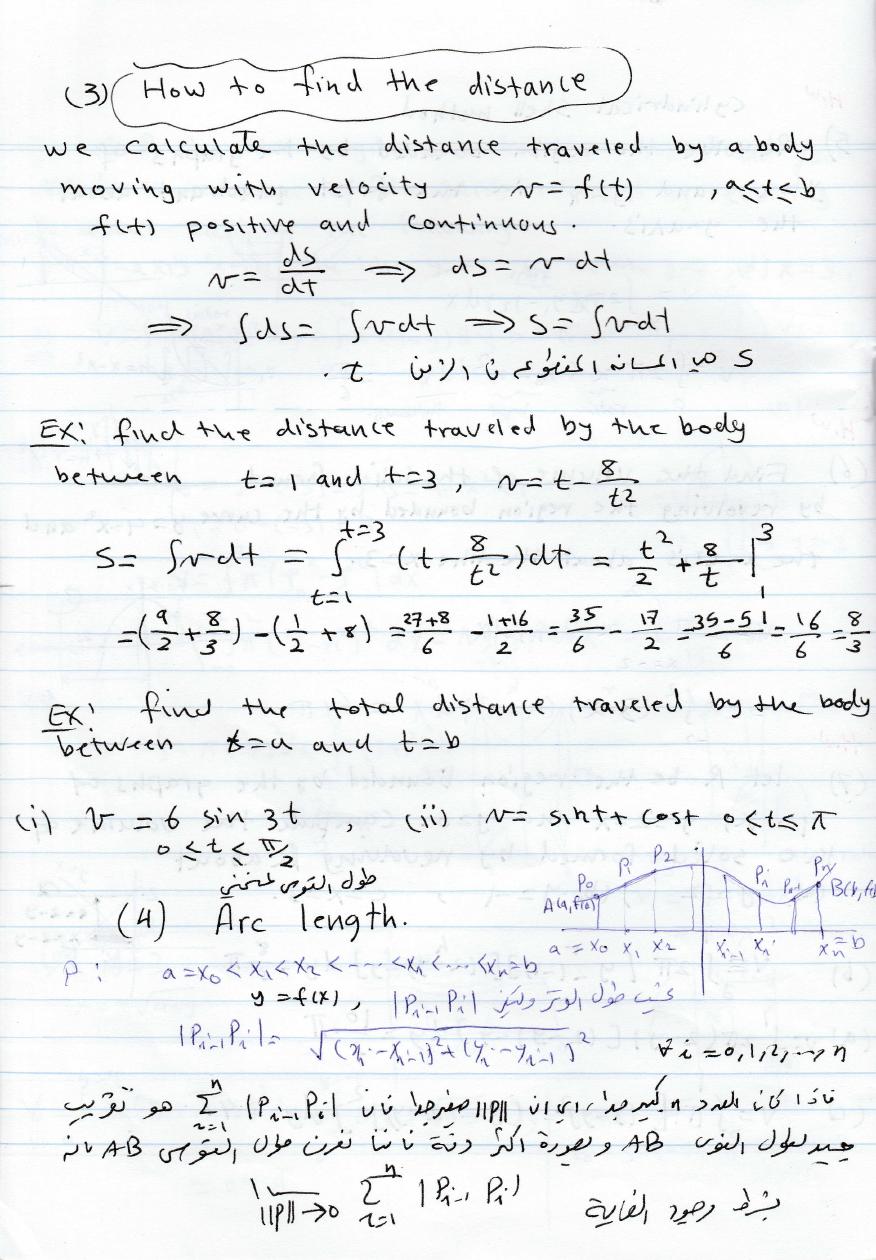 (3) How to find the distance
we calculate the distance traveled by a body
moving with velocity v = f(t) , a≤t≤b
f(t) positive and continuous.
v = ds/dt ⟹ ds = v dt
⟹ ∫ds = ∫v dt ⟹ s = ∫v dt
S هي المسافة المقطوعة في الزمن t .
EX: find the distance traveled by the body
between t=1 and t=3 , v = t - 8/t²
S = ∫v dt = ∫_{t=1}^{t=3} (t - 8/t²) dt = t²/2 + 8/t |_1^3
= (9/2 + 8/3) - (1/2 + 8) = 27+8/6 - 1+16/2 = 35/6 - 17/2 = 35-51/6 = 16/6 = 8/3
EX: find the total distance traveled by the body
between t=a and t=b
(i) v = 6 sin 3t , (ii) v = sint + cost 0≤t≤π
0≤t≤π/2
طول القوس لمنحني
(4) Arc length.
A(a,f(a)) P0 P1 P2 Pi Pn B(b,
a = x0 x1 x2 xi-1 xi xn = b
P: a=x0<x1<x2<....<xi<....<xn=b
y = f(x) , |Pi-1 Pi| طول الوتر وليكن
|Pi-1 Pi| = √((xi - xi-1)² + (yi - yi-1)²) ∀ i = 0,1,2,...,n
فاذا كان العدد n كبير جدا، اي ان ||P|| صغير جدا فان Σ_{i=1}^{n} |Pi-1 Pi| هو تقريب
جيد لطول القوس AB وبصورة اكثر دقة فاننا نعرف طول القوس AB بانه
||P||→0 Σ_{i=1}^{n} |Pi-1 Pi| بشرط وجود الغاية